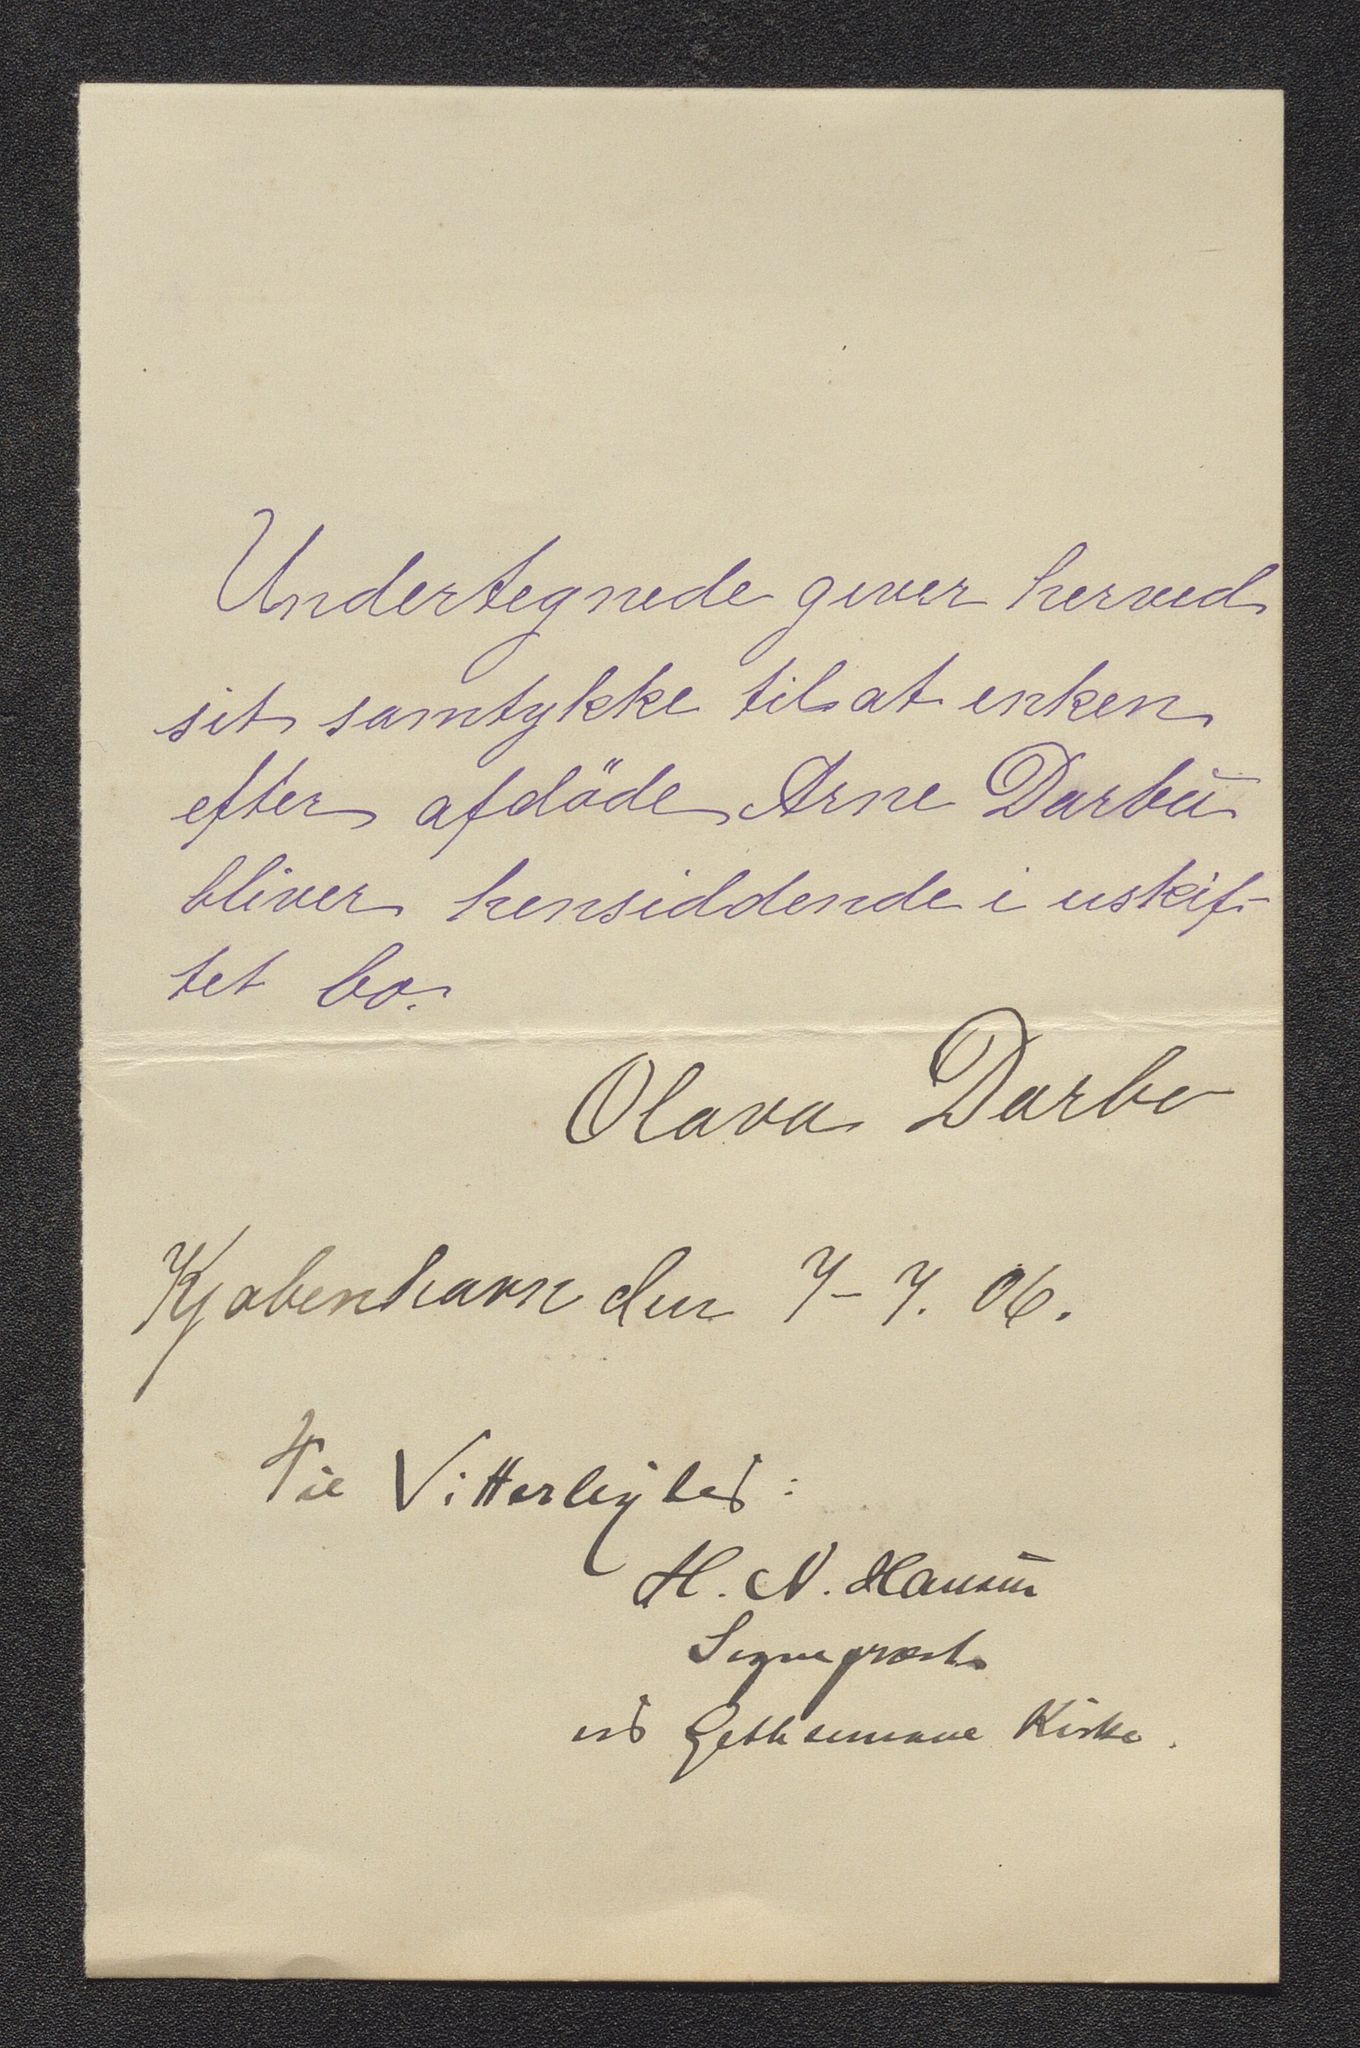 Undertegnede giver herved
sit samtykke til at enken
efter afdöde Arne Darbu
bliver hensiddende i uskif-
tet bo.
Olava Darbo
Kjøbenhavn den 7-7. 06.
Til Vitterlighed:
H. N. Hansen
Sognepræst
ved Gethsemane Kirke.